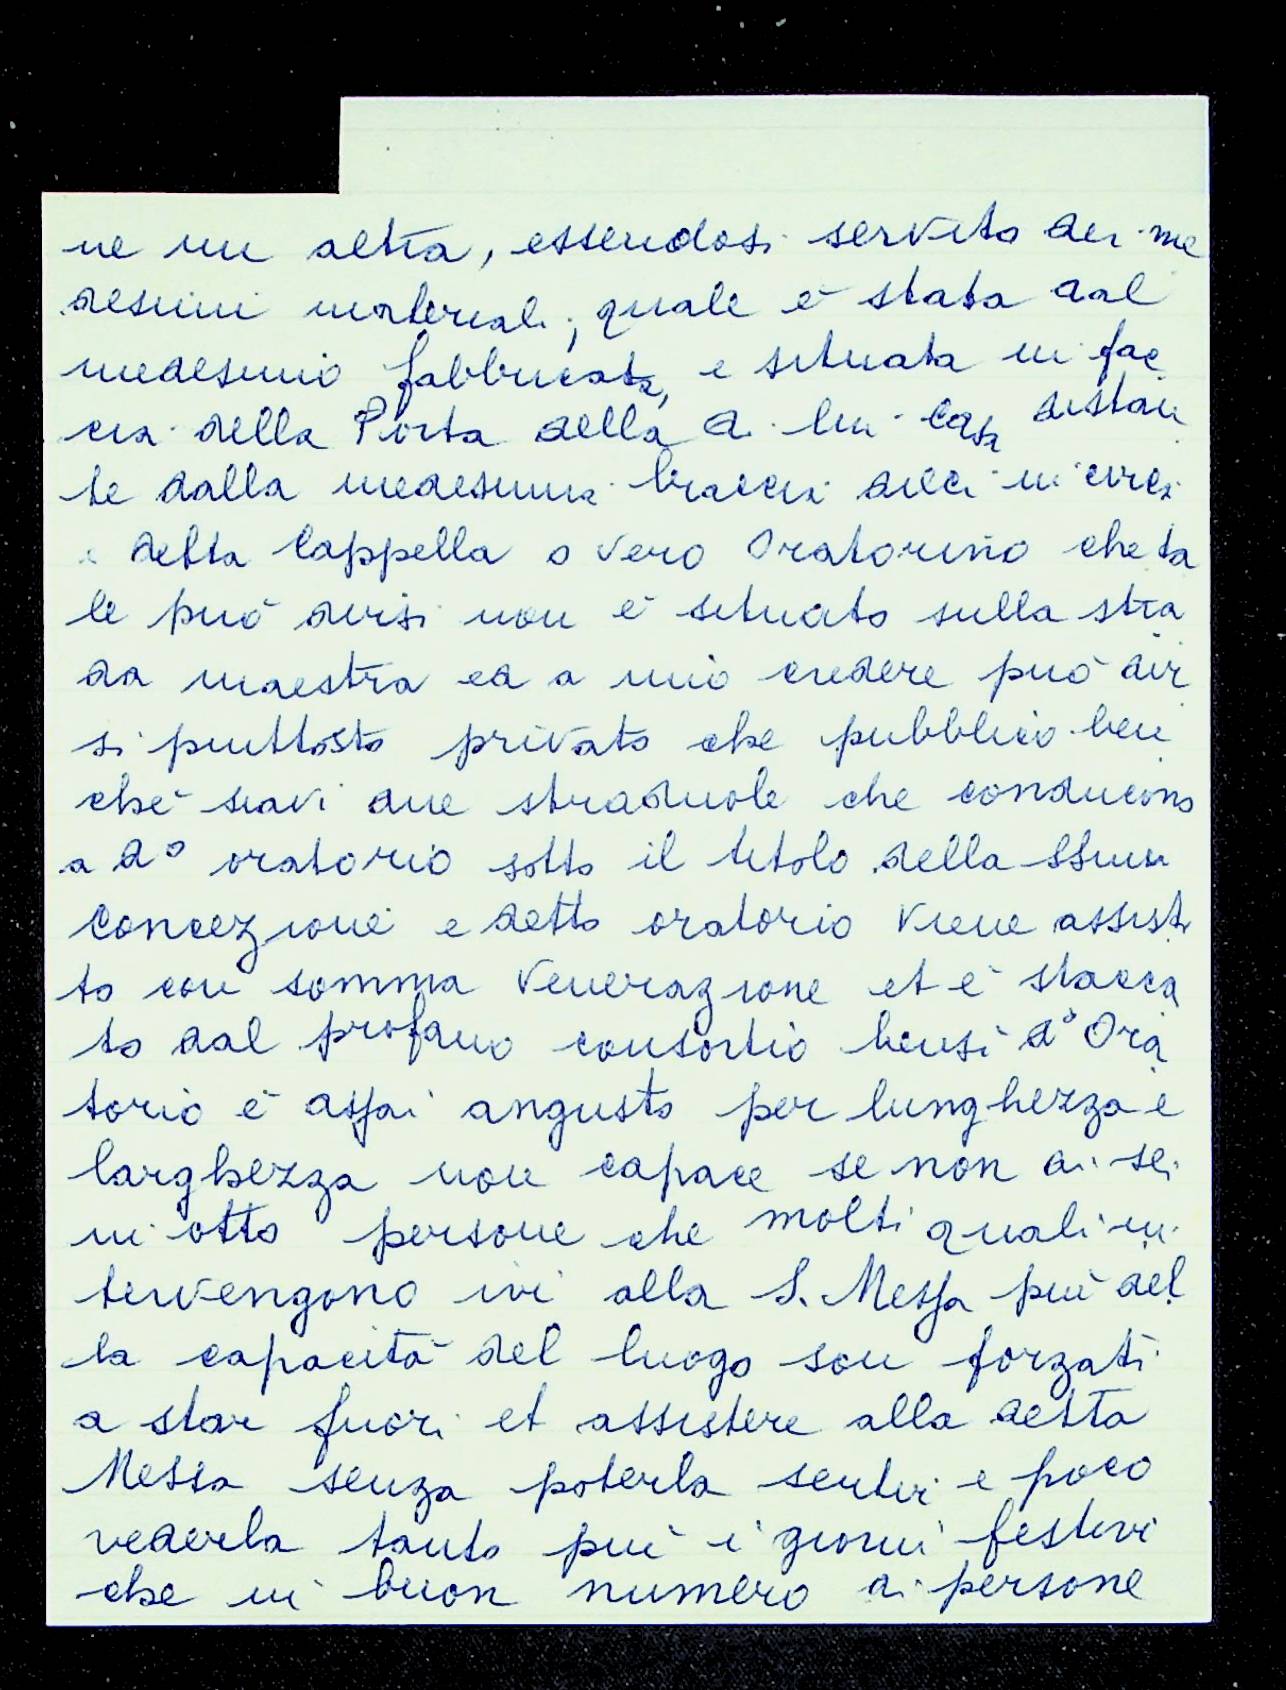 ne un altra, essendosi servito dei me
desimi materiali, quale è stata dal
medesimo fabbricata, e situata in fac
cia della Porta della di lui casa distan
te dalla medesima braccia dieci in circa
e detta Cappella o vero Oratorino che ta
le può dirsi non è situato sulla stra
da maestra ed a mio credere può dir
si piuttosto privato che pubblico ben
chè siavi due straduole che conducono
a do oratorio sotto il titolo della SSma
Concezione e detto oratorio viene assisti
to con somma Venerazione et è stacca
to dal profano consortio bensì do Ora
torio è assai angusto per lunghezza e
larghezza non capace se non di sei
in otto persone che molti quali in
tervengono ivi alla S. Messa più del
la capacità del luogo son forzati
a star fuori et assistere alla detta
Messa senza poterla sentir e poco
vederla tanto più i giorni festivi
che in buon numero di persone